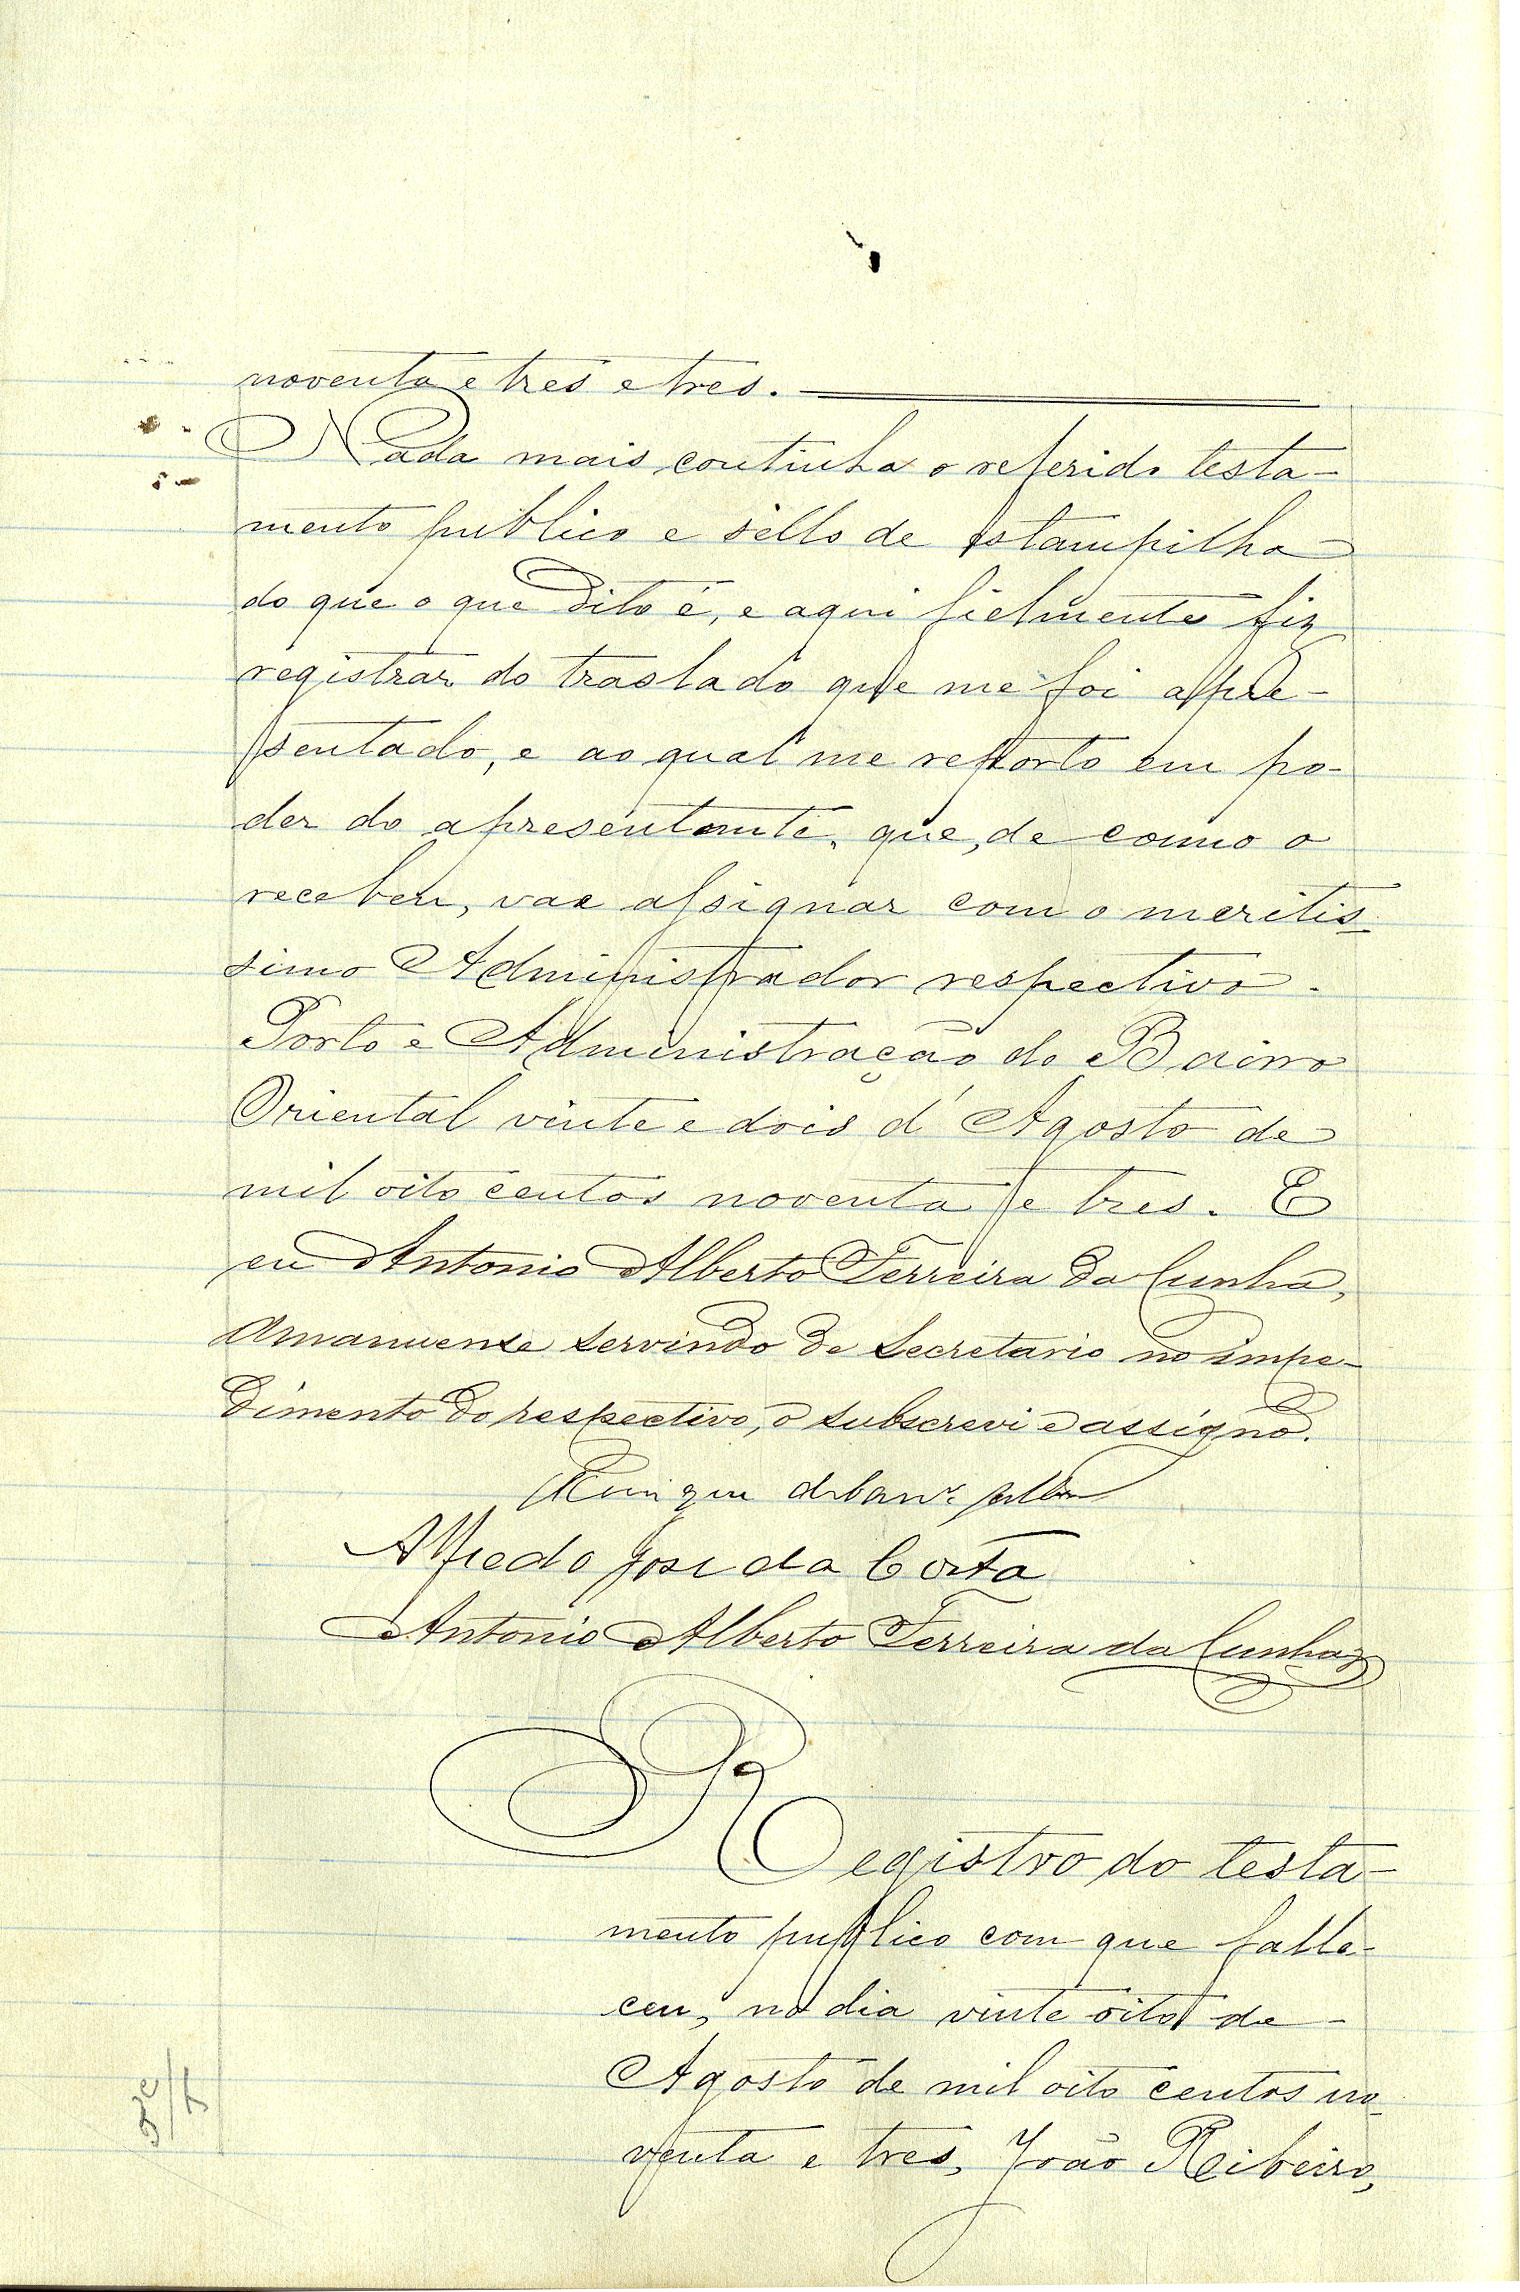 noventa e tres e tres.
Nada mais continha o referido testa-
mento publico e sello de estampilha
do que o que dito é, e aqui fielmente fiz
registrar do traslado que me foi apre-
sentado, e ao qual me reporto em po-
der do apresentante, que, de como o
recebeu, vae assignar com o meritis-
simo Administrador respectivo.
Porto e Administração do Bairro
Oriental vinte e dois d'Agosto de
mil oito centos noventa e tres. E
eu Antonio Alberto Ferreira da Cunha,
Amanuense servindo de Secretario no impe-
dimento do respectivo, o subscrevi e assigno.
Alfredo José da Costa
Antonio Alberto Ferreira da Cunha
Registro do testa-
mento publico com que falle-
ceu, no dia vinte oito de
Agosto de mil oito centos no-
venta e tres, João Ribeiro,